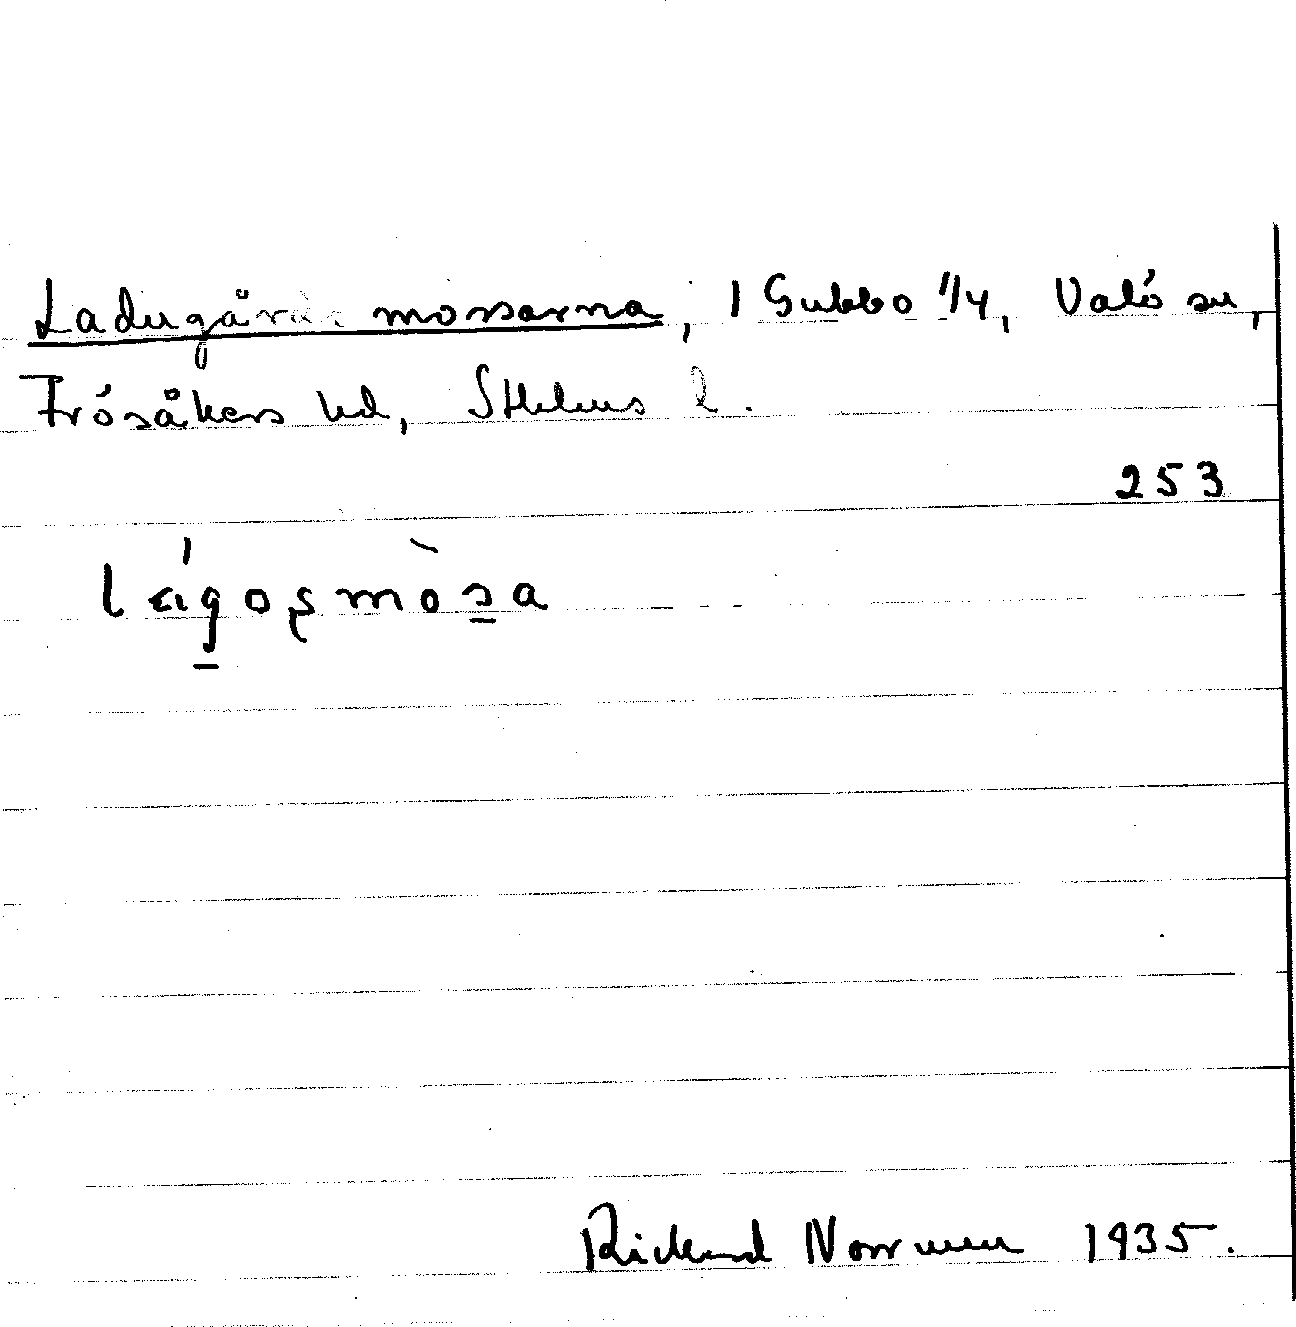 Ladugårdsmossarna, 1 Gubbo 1/4, Valö sn,
Frösåkers hd, Sthlms l.
253
Rickard Norrman 1935.